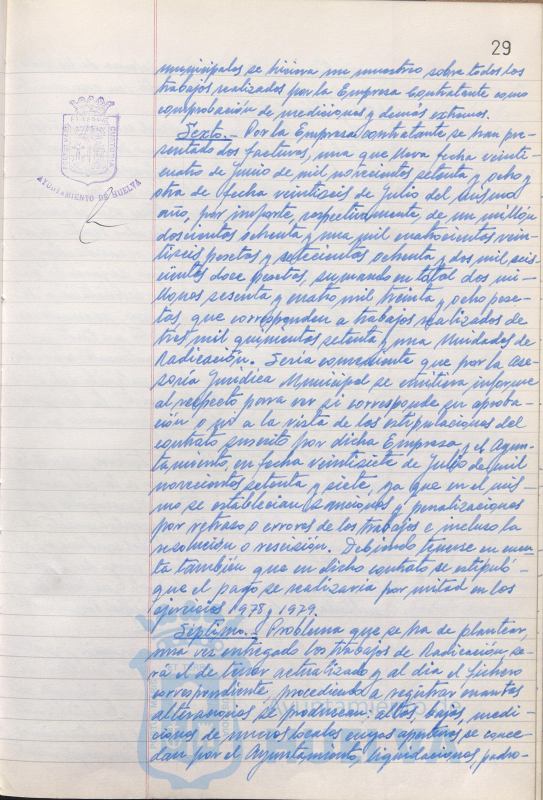 29
municipales se hiciera un muestreo sobre todos los
trabajos realizados por la Empresa Contratante como
comprobación de mediciones y demás extremos.
Sexto.- Por la Empresa contratante se han pre-
sentado dos facturas, una que lleva fecha veinti-
cuatro de Junio de mil novecientos setenta y ocho y
otra de fecha veintiseis de Julio del mismo
año, por importe, respectivamente, de un millón
doscientas ochenta y una mil cuatrocientas vein-
tiseis pesetas y setecientas ochenta y dos mil seis-
cientas doce pesetas, sumando en total dos mi-
llones sesenta y cuatro mil treinta y ocho pese-
tas, que corresponden a trabajos realizados de
tres mil quinientos setenta y una Unidades de
Radicación. Sería conveniente que por la Ase-
soría Jurídica Municipal se emitiera informe
al respecto para ver si corresponde su aproba-
ción o no a la vista de las estipulaciones del
contrato suscrito por dicha Empresa y el Ayun-
tamiento, en fecha veintisiete de Julio de mil
novecientos setenta y siete, ya que en el mis-
mo se establecian sanciones y penalizaciones
por retraso o errores de los trabajos e incluso la
resolución o rescisión. Debiendo tenerse en cuen-
ta también que en dicho contrato se estipuló-
que el pago se realizaria por mitad en los
ejercicios 1978 y 1979.
Séptimo.- Problema que se ha de plantear,
una vez entregado los trabajos de Radicación, se-
rá el de tener actualizado y al dia el fichero
correspondiente, procediendo a registrar cuantas
alteraciones se produzcan: altas, bajas, medi-
ciones de nuevos locales cuyas aperturas se conce-
dan por el Ayuntamiento, liquidaciones padro-
AYUNTAMIENTO DE HUELVA
Ayuntamiento de